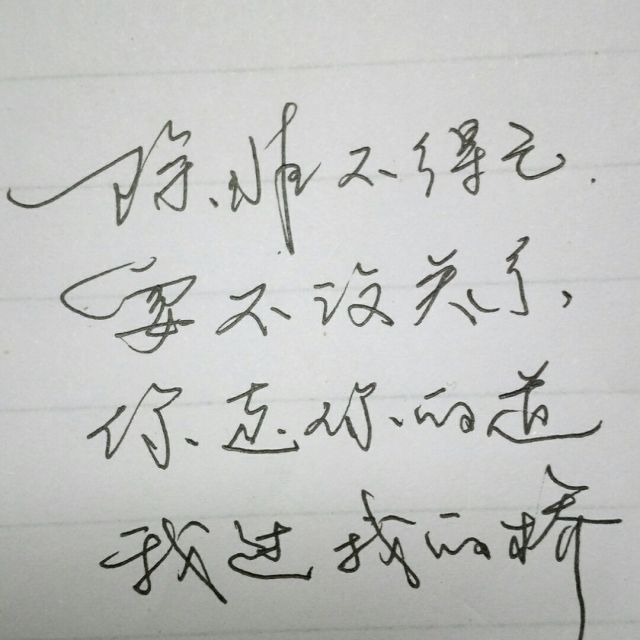 除非不得已
要不没关系
你走你的道
我过我的桥